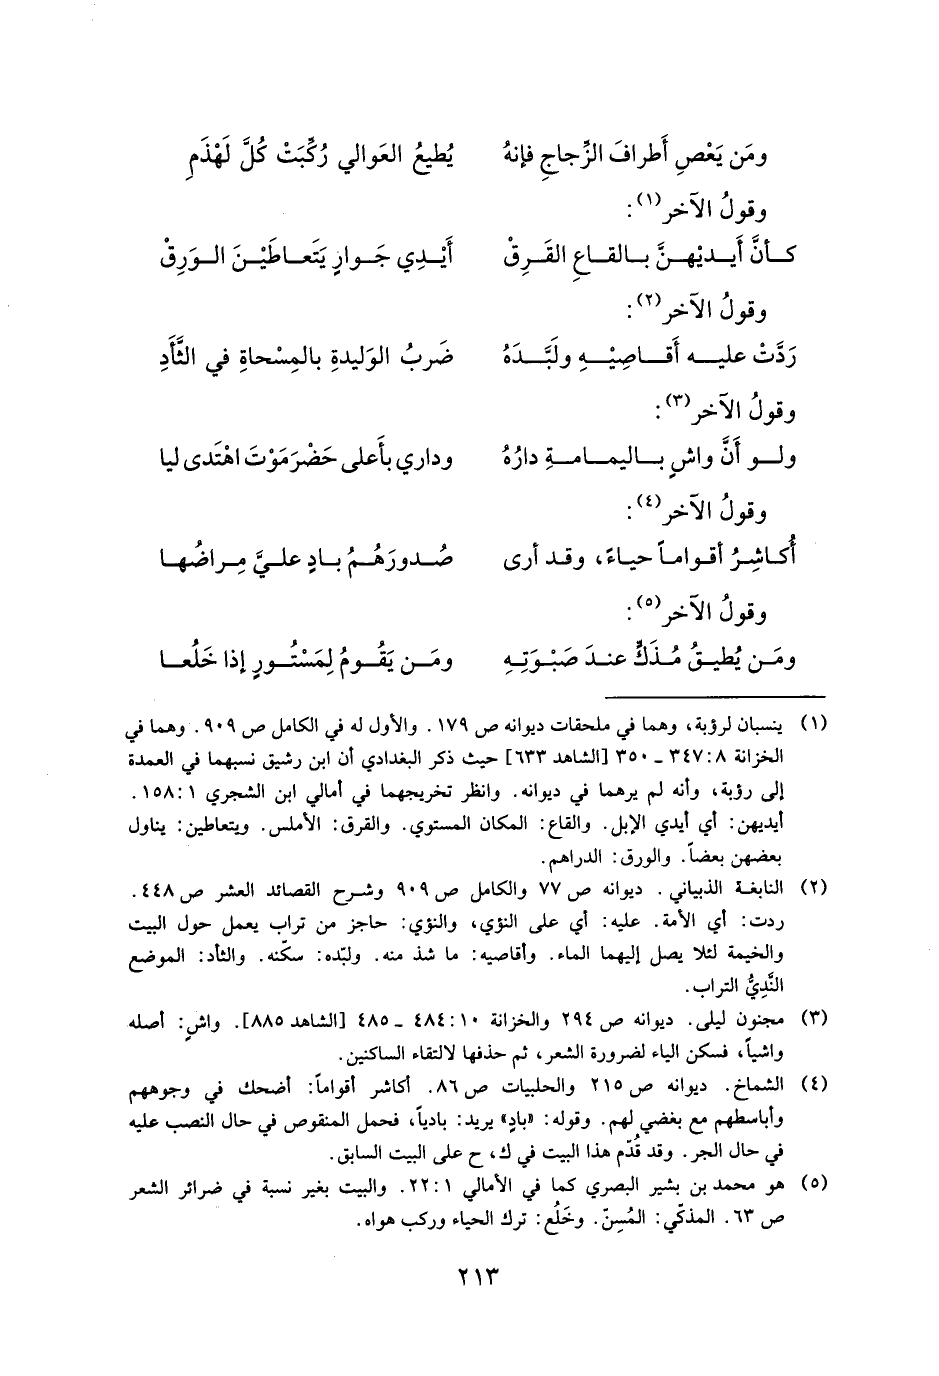 ومَن يَعْصِ أَطرافَ الزِّجاجِ فإنهُ يُطيعُ العَوالي رُكِّبَتْ كُلَّ لَهْذَمِ
وقولُ الآخر(١):
كأنَّ أَيديْهنَّ بالقاعِ القَرِقْ أَيْدِي جَوارٍ يَتَعاطَيْنَ الورِقْ
وقولُ الآخر(٢):
رَدَّتْ عليه أَقاصِيْهِ ولَبَّدَهُ ضَربُ الوَليدةِ بالمِسْحاةِ في الثَّأَدِ
وقولُ الآخر(٣):
ولو أَنَّ واشٍ باليمامةِ دارُهُ وداري بأَعلى حَضْرَمَوْتَ اهْتَدى ليا
وقولُ الآخر(٤):
أُكاشِرُ أقواماً حياءً، وقد أرى صُدورَهُمُ بادٍ عليَّ مِراضُها
وقولُ الآخر(٥):
ومَن يُطيقُ مُذَكٍّ عندَ صَبْوَتِهِ ومَن يَقُومُ لِمَسْتُورٍ إذا خَلُعا
(١) ينسبان لرؤبة، وهما في ملحقات ديوانه ص ١٧٩. والأول له في الكامل ص ٩٠٩. وهما في
الخزانة ٨: ٣٤٧ ـ ٣٥٠ [الشاهد ٦٣٣] حيث ذكر البغدادي أن ابن رشيق نسبهما في العمدة
إلى رؤبة، وأنه لم يرهما في ديوانه. وانظر تخريجهما في أمالي ابن الشجري ١: ١٥٨.
أيديهن: أي أيدي الإبل. والقاع: المكان المستوي. والقرق: الأملس. ويتعاطين: يناول
بعضهن بعضاً. والورق: الدراهم.
(٢) النابغة الذبياني. ديوانه ص ٧٧ والكامل ص ٩٠٩ وشرح القصائد العشر ص ٤٤٨.
ردت: أي الأمة. عليه: أي على النؤي، والنؤي: حاجز من تراب يعمل حول البيت
والخيمة لئلا يصل إليهما الماء. وأقاصيه: ما شذ منه. ولبّده: سكّنه. والثأد: الموضع
النَّدِيُّ التراب.
(٣) مجنون ليلى. ديوانه ص ٢٩٤ والخزانة ١٠: ٤٨٤ ـ ٤٨٥ [الشاهد ٨٨٥]. واشٍ: أصله
واشياً، فسكن الياء لضرورة الشعر، ثم حذفها لالتقاء الساكنين.
(٤) الشماخ. ديوانه ص ٢١٥ والحلبيات ص ٨٦. أكاشر أقواماً: أضحك في وجوههم
وأباسطهم مع بغضي لهم. وقوله: «بادٍ» يريد: بادياً، فحمل المنقوص في حال النصب عليه
في حال الجر. وقد قُدّم هذا البيت في ك، ح على البيت السابق.
(٥) هو محمد بن بشير البصري كما في الأمالي ١: ٢٢. والبيت بغير نسبة في ضرائر الشعر
ص ٦٣. المذكّي: المُسِنّ. وخَلُع: ترك الحياء وركب هواه.
٢١٣